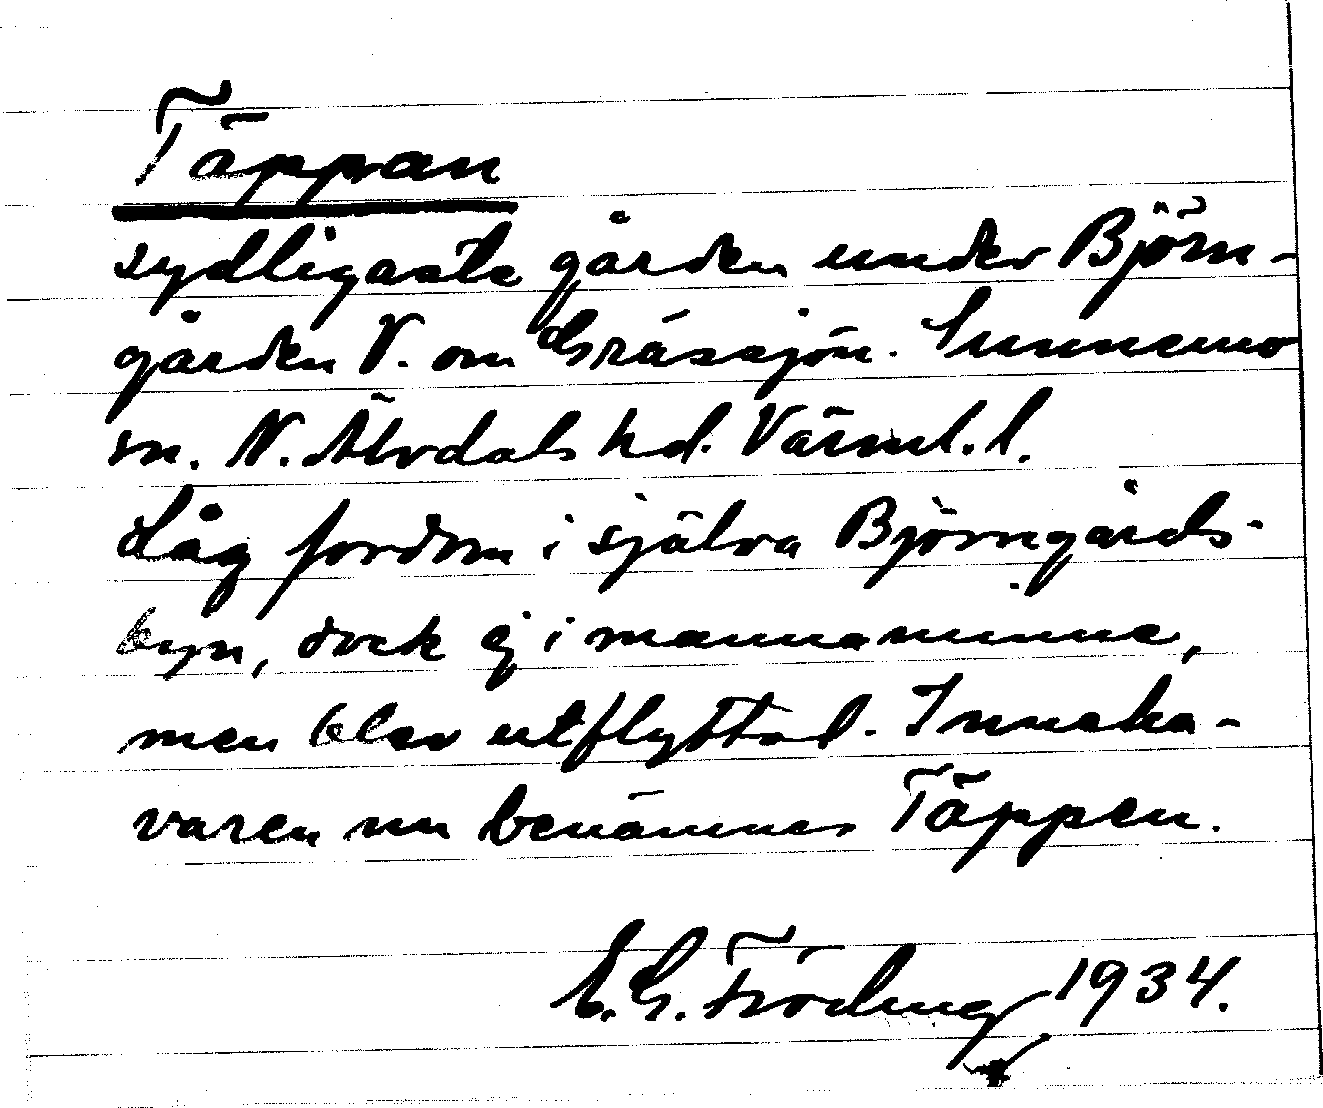 Täppan
sydligaste gården under Björn-
gården V. om Gräsjön. Sunnemo
sn. N. Älvdals hd. Värml. l.
Låg fordom i själva Björngårds-
byn, dock ej i mannaminne,
men blev utflyttad. Inneha-
varen nu benämnes Täppen.
E. G. Fröding 1934.